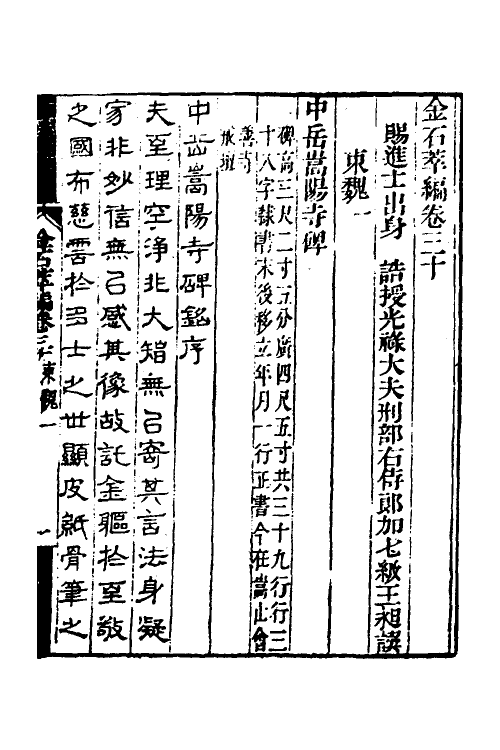 金石萃編卷三十
賜進士出身　誥授光祿大夫刑部右侍郎加七級王昶譔
東魏一
中岳嵩陽寺碑
碑高三尺二寸五分廣四尺五寸共三十九行行三
十八字隸書末後移立年月一行正書今在嵩山會
善寺
戒壇
中岳嵩陽寺碑銘序
夫至理空淨非大智無㠯寄其言法身凝
家非妙信無㠯感其像故託金軀扵至敬
之國布慈雲扵多士之世顯皮紙骨筆之
金石萃編卷三十 東魏一
一